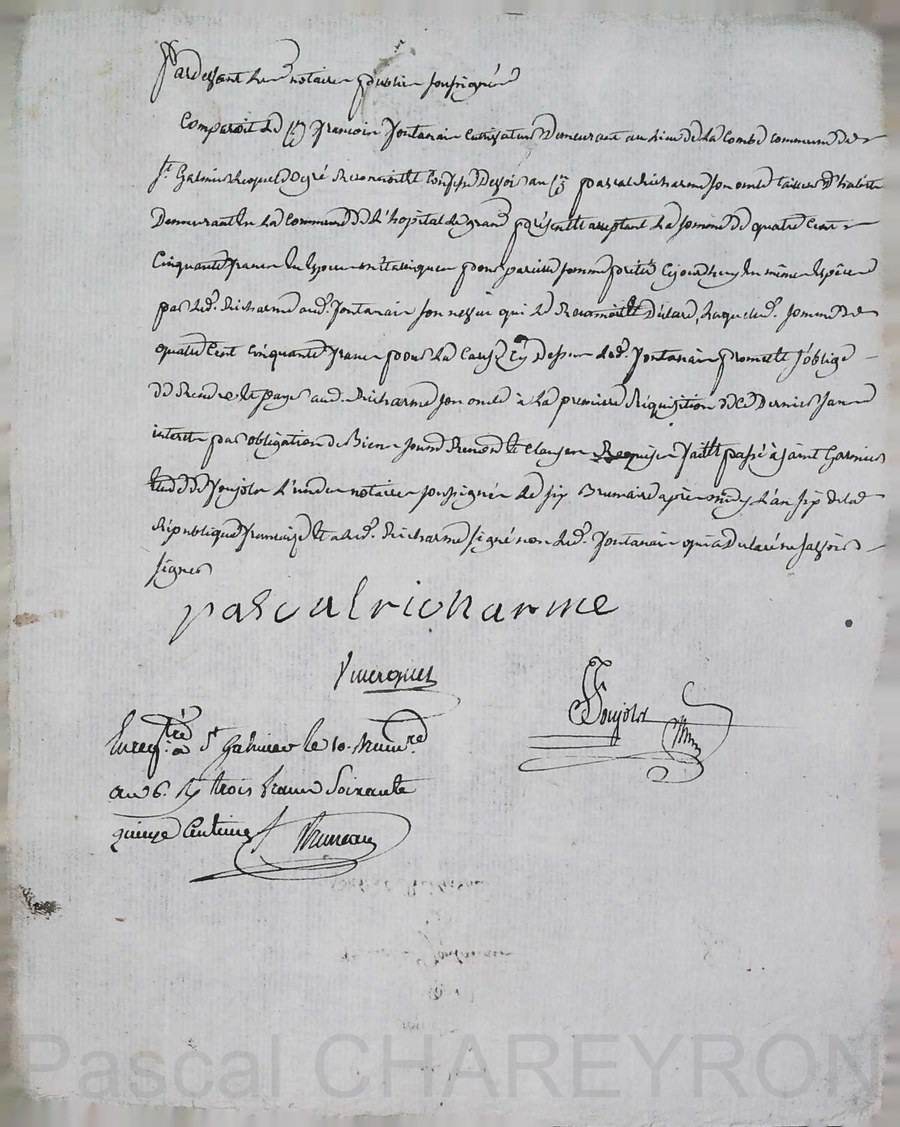 Pardevant le notaire public soussigné
Comparoit le Cen françois fontanair cultivateur demeurant au lieu de la Combe commune de
St Galmier lequel de gré Reconnoitt Confesse devoir au Cen pascal Richarme son oncle tailleur d'habits
Demeurant en la Commune de L'hopital le grand présent et acceptant La somme de quatre Cent
Cinquante francs En Espece métallique pour pareille somme pretée Cejourdhuy En même Espèce
par led. Richarme aud. fontanair son neveu qui Le Reconnoitt Déclare, Laquelle d. somme de
quatre Cent cinquante francs pour La Cause Cy Dessus led. fontanair promett s'oblige
de Rendre et payer aud. Richarme son oncle à La premiere Réquisition de Ce Dernier sans
interets par obligation de Biens soumis Renon et Clauses Requises faitt passé à saint Galmier
Etude de foujols L'un des notaires soussignés Le six Brumaire après midy L'an six de la
République francaise Et a led. Richarme signé non led. fontanair qui a déclaré ne savoir
signer
pascal richarme
foujols
Enregtré a St Galmier le 10. brumre
an 6. Rç trois francs Soixante
quinze Centimes
Pascal CHAREYRON